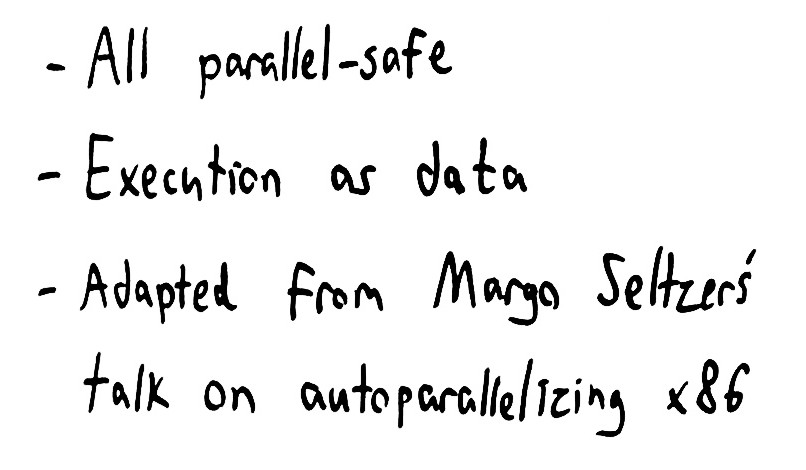 - All parallel-safe
- Execution as data
- Adapted from Margo Seltzer's
talk on autoparallelizing x86